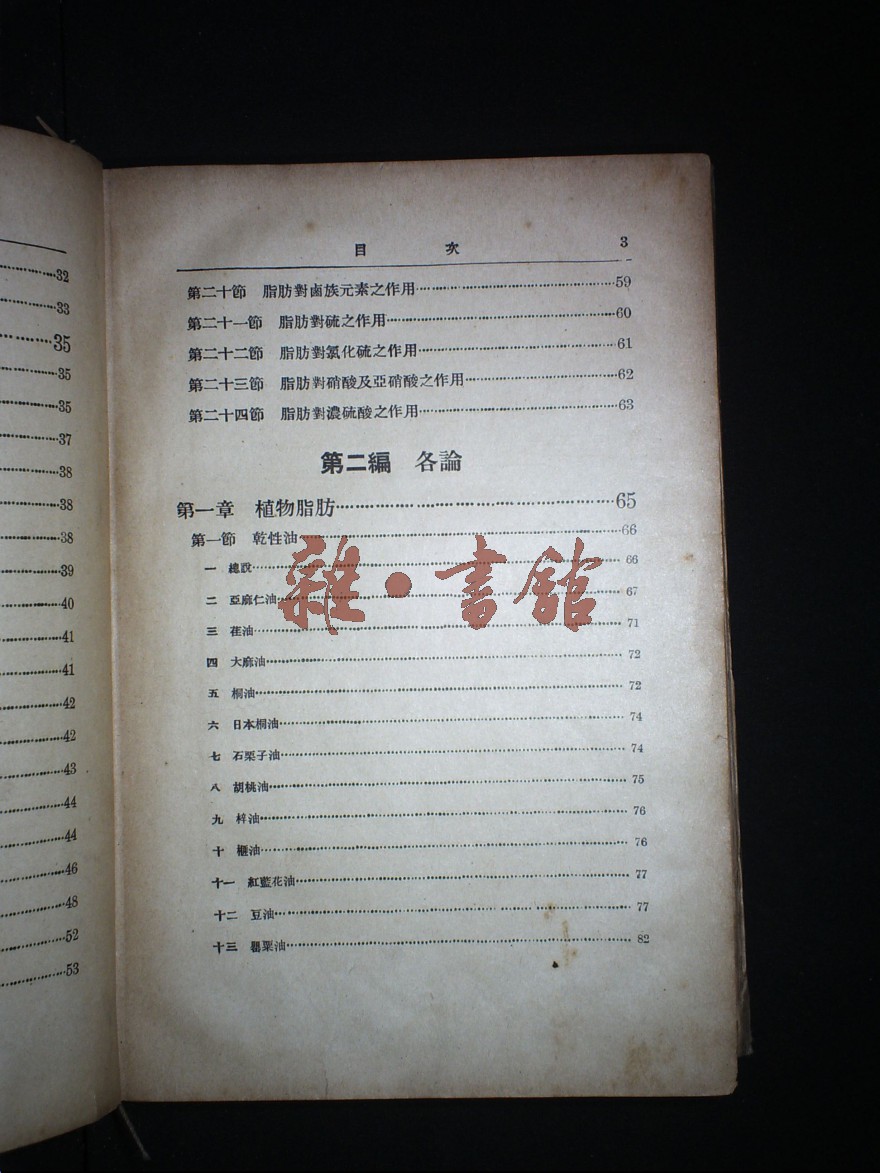 32
33
35
35
35
37
38
38
38
39
40
41
41
42
42
43
44
44
46
48
52
53
目 次 3
第二十節 脂肪對鹵族元素之作用 59
第二十一節 脂肪對硫之作用 60
第二十二節 脂肪對氯化硫之作用 61
第二十三節 脂肪對硝酸及亞硝酸之作用 62
第二十四節 脂肪對濃硫酸之作用 63
第二編 各論
第一章 植物脂肪 65
第一節 乾性油 66
一 總說 66
二 亞麻仁油 67
三 荏油 71
四 大麻油 72
五 桐油 72
六 日本桐油 74
七 石栗子油 74
八 胡桃油 75
九 梓油 76
十 榧油 76
十一 紅藍花油 77
十二 豆油 77
十三 罌粟油 82
雜·書館